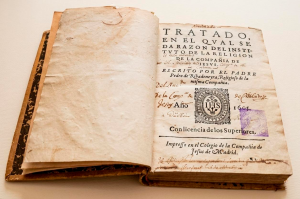 TRATADO,
EN EL QVAL SE
DA RAZON DEL INSTI-
TVTO DE LA RELIGION
DE LA COMPAÑIA DE
IESVS.
ESCRITO POR EL PADRE
Pedro de Ribadeneyra, Religioso de la
misma Compañia.
Año
Con licencia de los Superiores.
Impresso en el Colegio de la Compañia de
Jesus de Madrid.